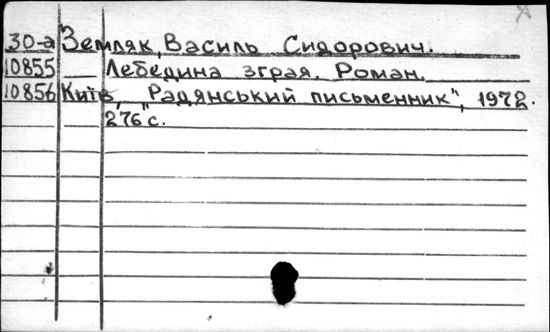 30-а Земляк, Василь Сидорович.
10855 Лебедина зграя. Роман.
10856 Київ, „Радянський письменник", 1972.
276 с.